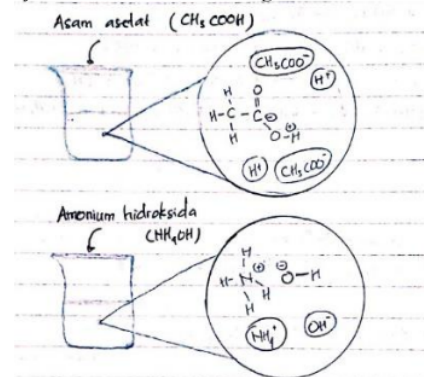 Asam asetat (CH₃COOH)
CH₃COO⁻
H⁺
H O
H-C-C⊖
H O-H
⊕
H⁺ CH₃COO⁻
Amonium hidroksida
(NH₄OH)
H
⊕ ⊖
H-N O-H
H
H
NH₄⁺ OH⁻